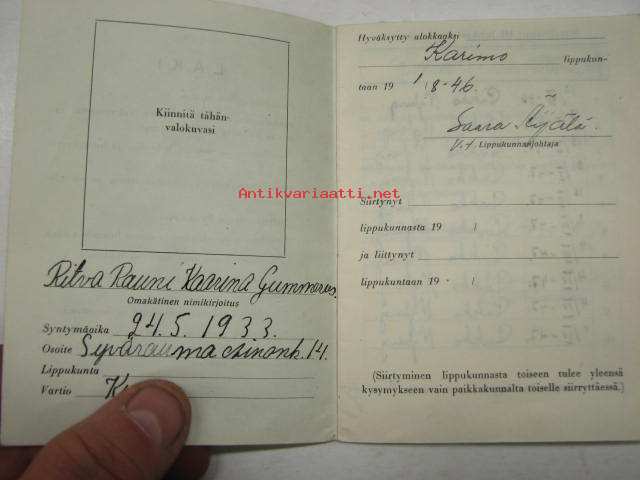 Kiinnitä tähän-
valokuvasi
Ritva Rauni Kaarina Gummerus.
Omakätinen nimikirjoitus
Syntymäaika 24.5.1933.
Osoite 14.
Lippukunta
Vartio
Hyväksytty alokkaaksi
Karimo lippukun-
taan 19 1/8-46.
Saara
V.t. Lippukunnanjohtaja
Siirtynyt
lippukunnasta 19 /
ja liittynyt
lippukuntaan 19 /
(Siirtyminen lippukunnasta toiseen tulee yleensä
kysymykseen vain paikkakunnalta toiselle siirryttäessä.)
Antikvariaatti.net